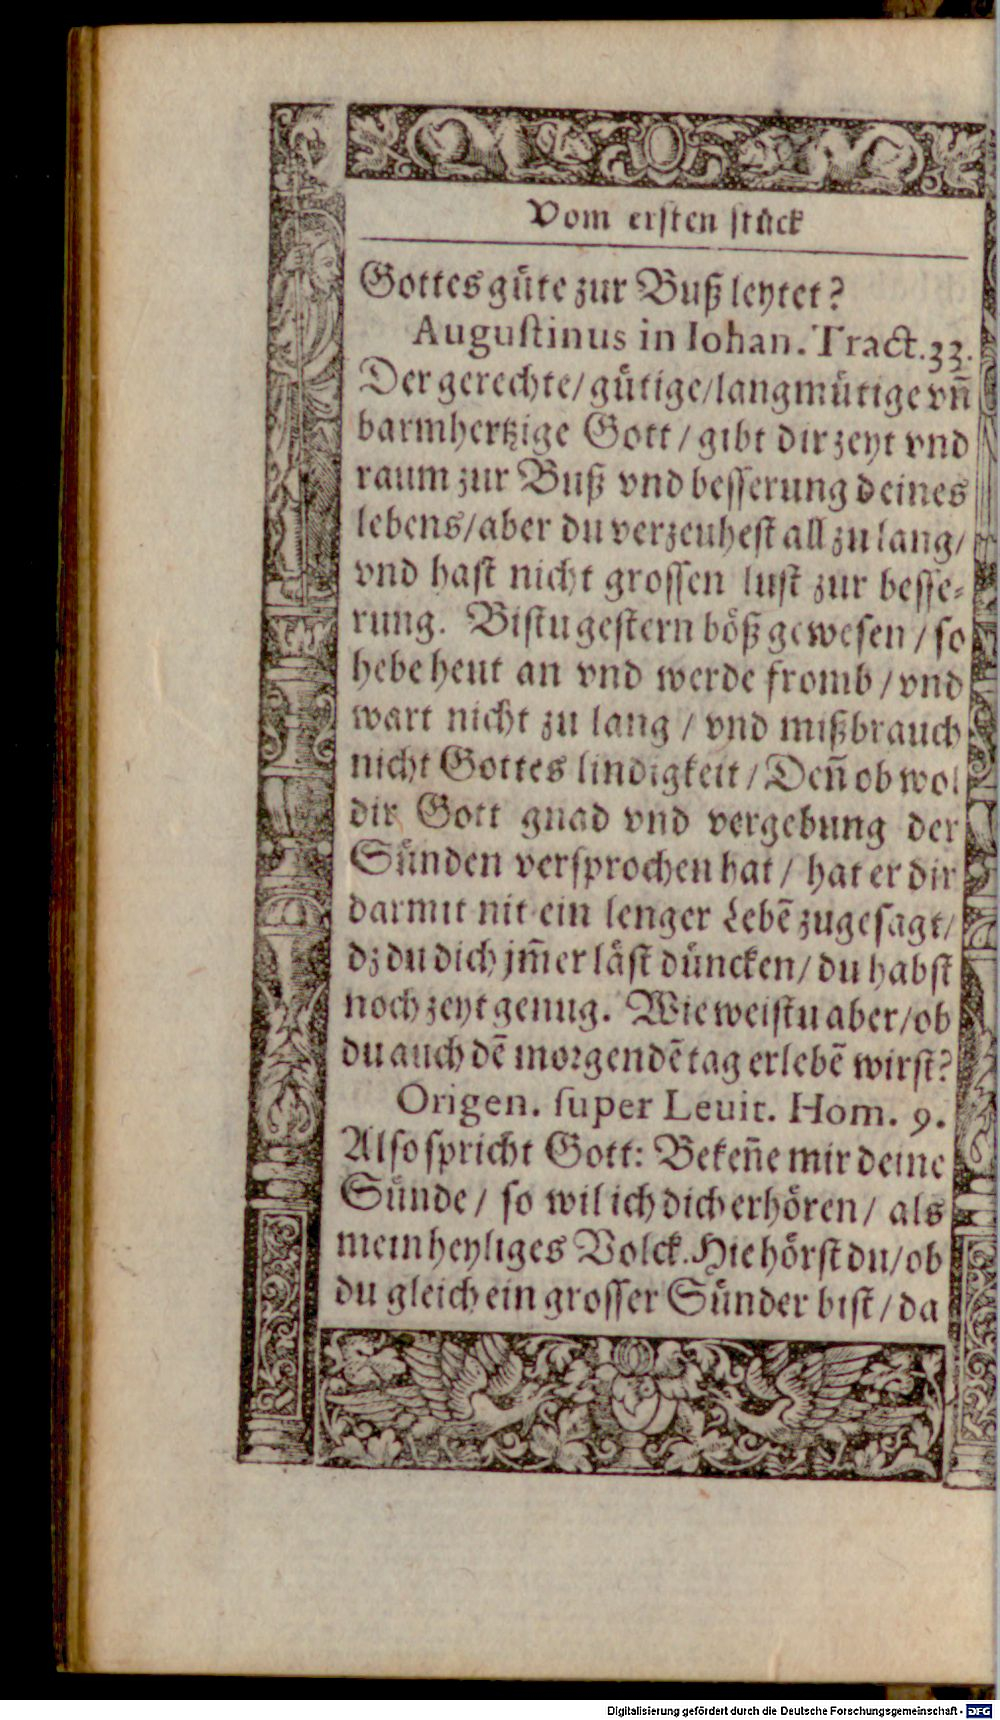 Vom ersten stück
Gottes güte zur Buß leytet?
Augustinus in Iohan. Tract. 33.
Der gerechte/ gütige/ langmütige vñ
barmhertzige Gott/ gibt dir zeyt vnd
raum zur Buß vnd besserung deines
lebens/ aber du verzeuhest all zu lang/
vnd hast nicht grossen lust zur besse-
rung. Bistu gestern böß gewesen/ so
hebe heut an vnd werde fromb/ vnd
wart nicht zu lang/ vnd mißbrauch
nicht Gottes lindigkeit/ Deñ ob wol
dir Gott gnad vnd vergebung der
Sünden versprochen hat/ hat er dir
darmit nit ein lenger Lebẽ zugesagt/
dz du dich jm̃er läst düncken/ du habst
noch zeyt genug. Wie weistu aber/ ob
du auch dẽ morgendẽ tag erlebẽ wirst?
Origen. super Leuit. Hom. 9.
Also spricht Gott: Bekeñe mir deine
Sünde/ so wil ich dich erhören/ als
mein heyliges Volck. Hie hörst du/ ob
du gleich ein grosser Sünder bist/ da
Digitalisierung gefördert durch die Deutsche Forschungsgemeinschaft - DFG